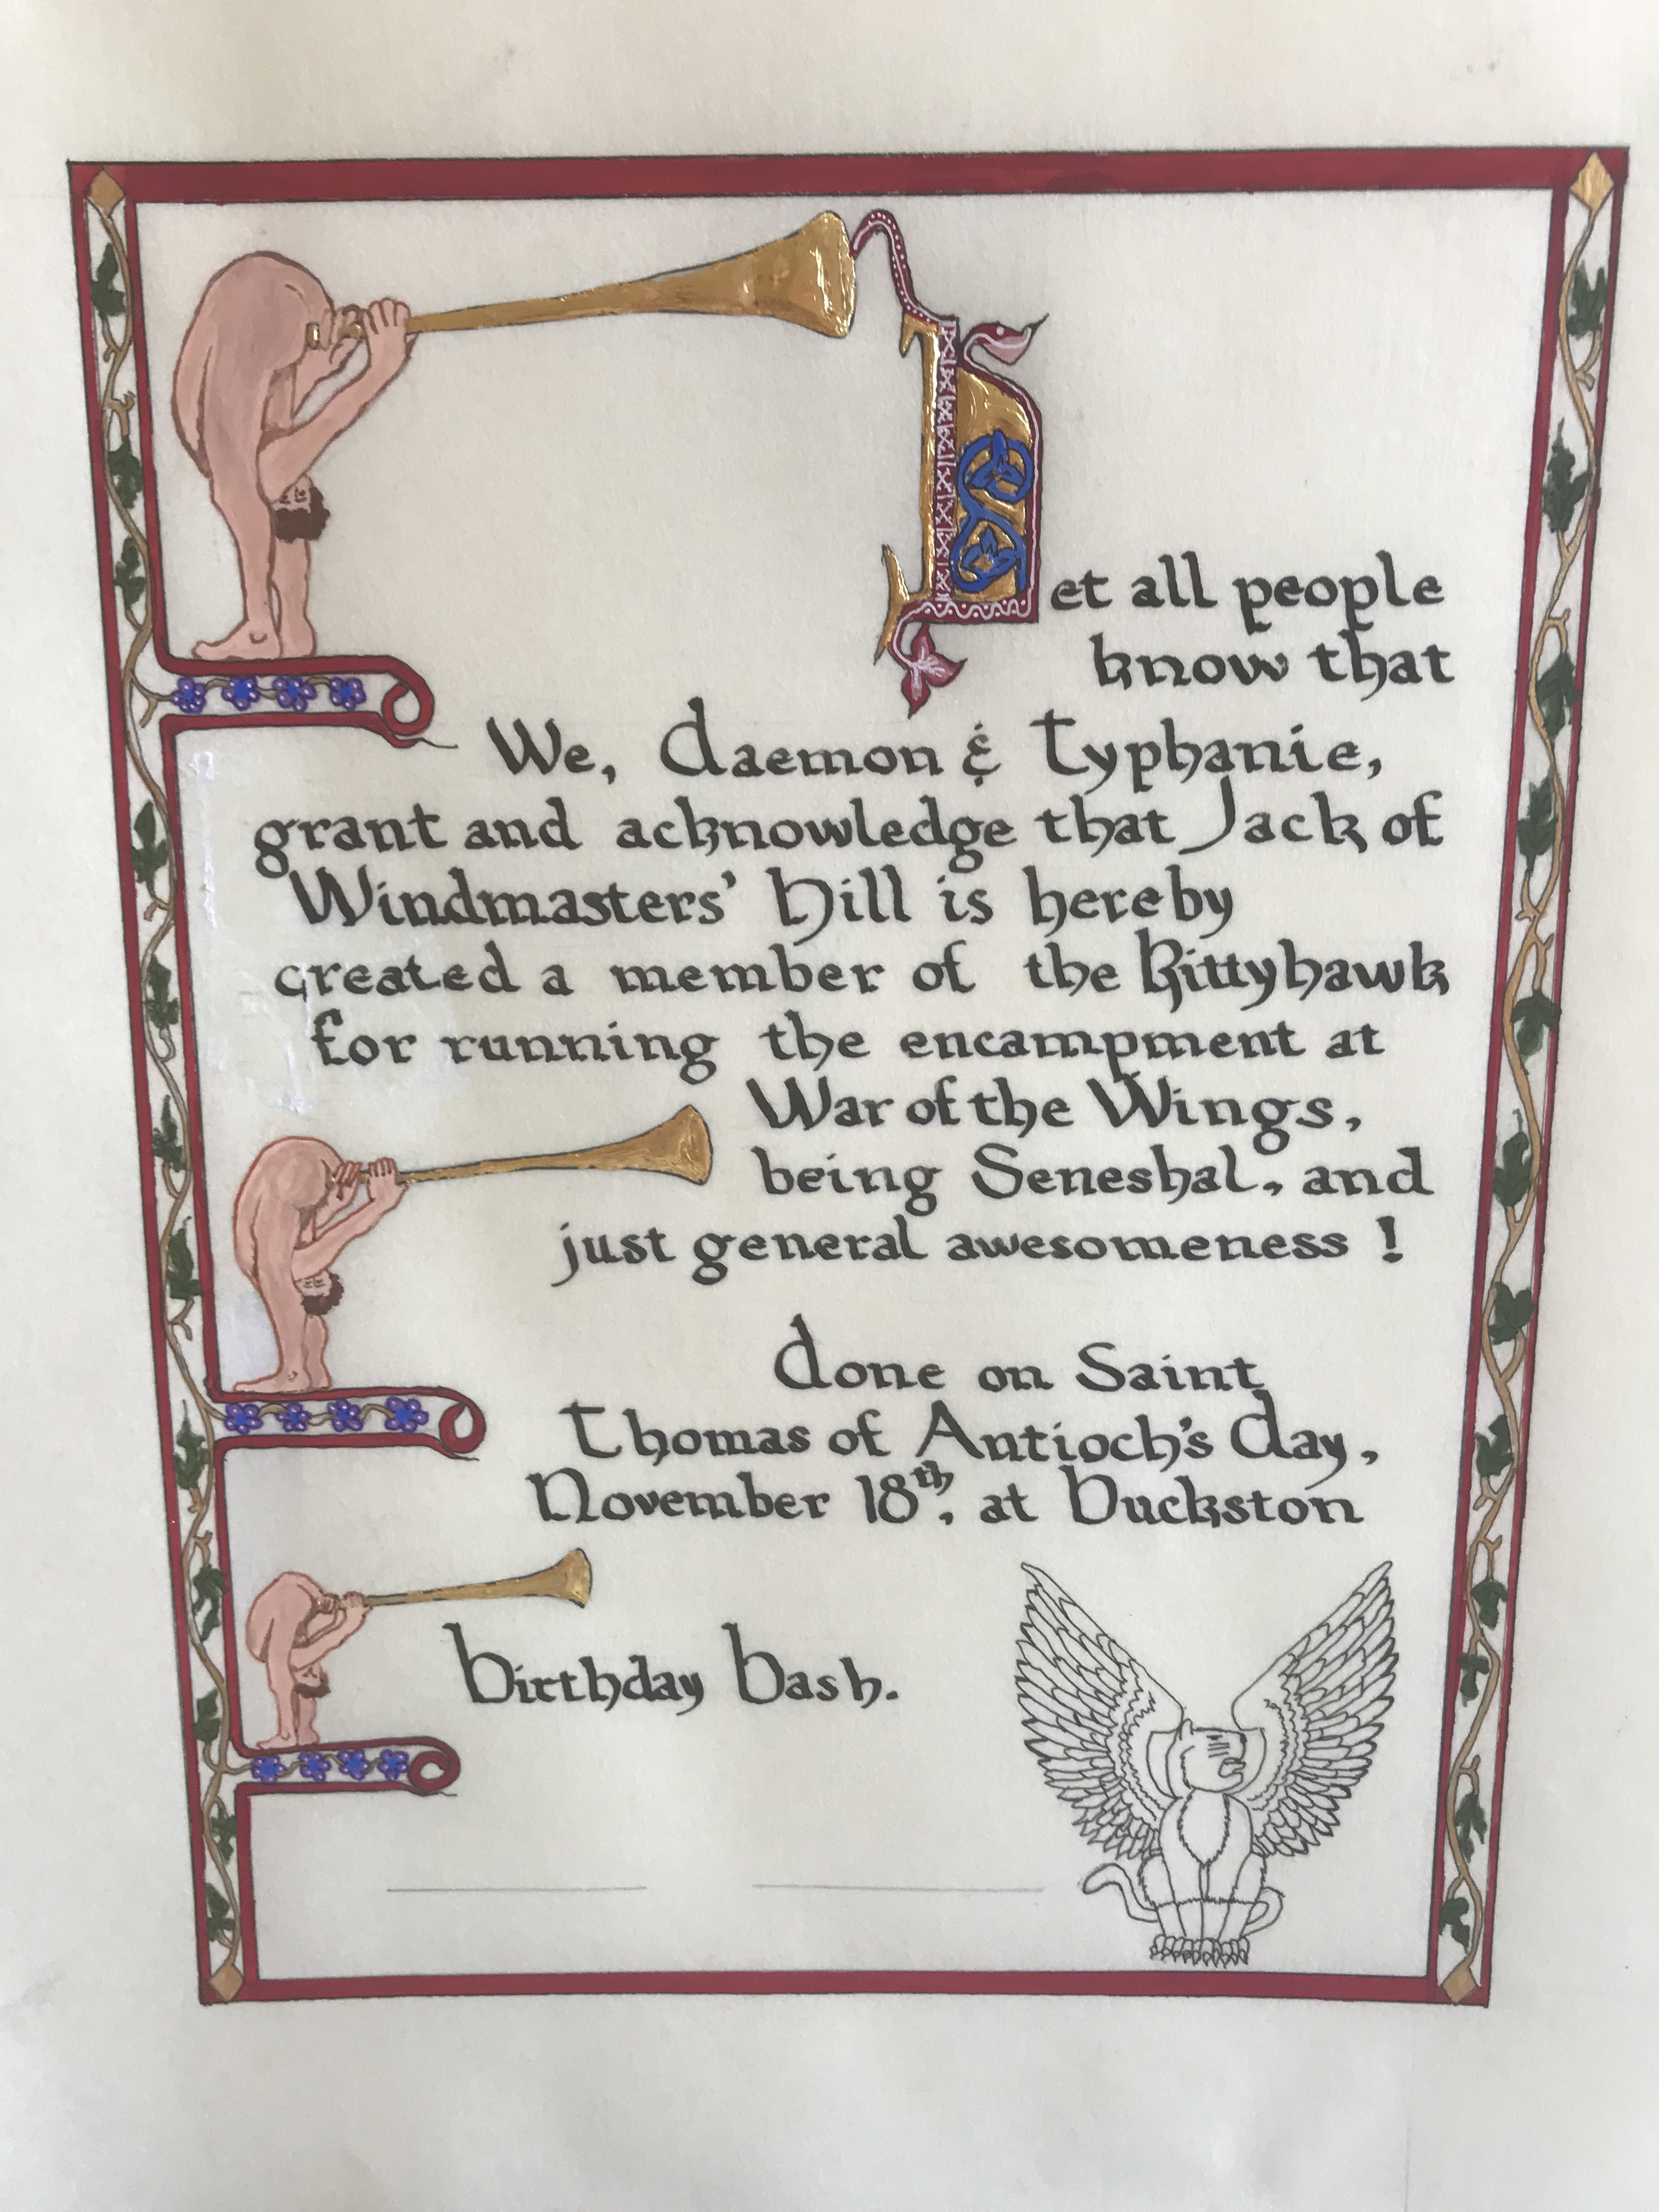 Let all people
know that
We, Daemon & Typhanie,
grant and acknowledge that Jack of
Windmasters' Hill is hereby
created a member of the Kittyhawk
for running the encampment at
War of the Wings,
being Seneshal, and
just general awesomeness !
Done on Saint
Thomas of Antioch's Day,
November 18th, at Duckston
Birthday Bash.